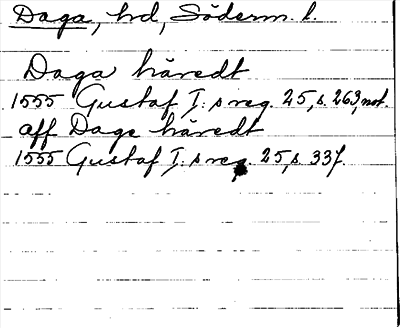 Daga, hd, Söderm. l.
Daga häredt
1555 Gustaf I:s reg. 25, s. 263, not.
aff Dage häredt
1555 Gustaf I:s reg. 25, s. 337.